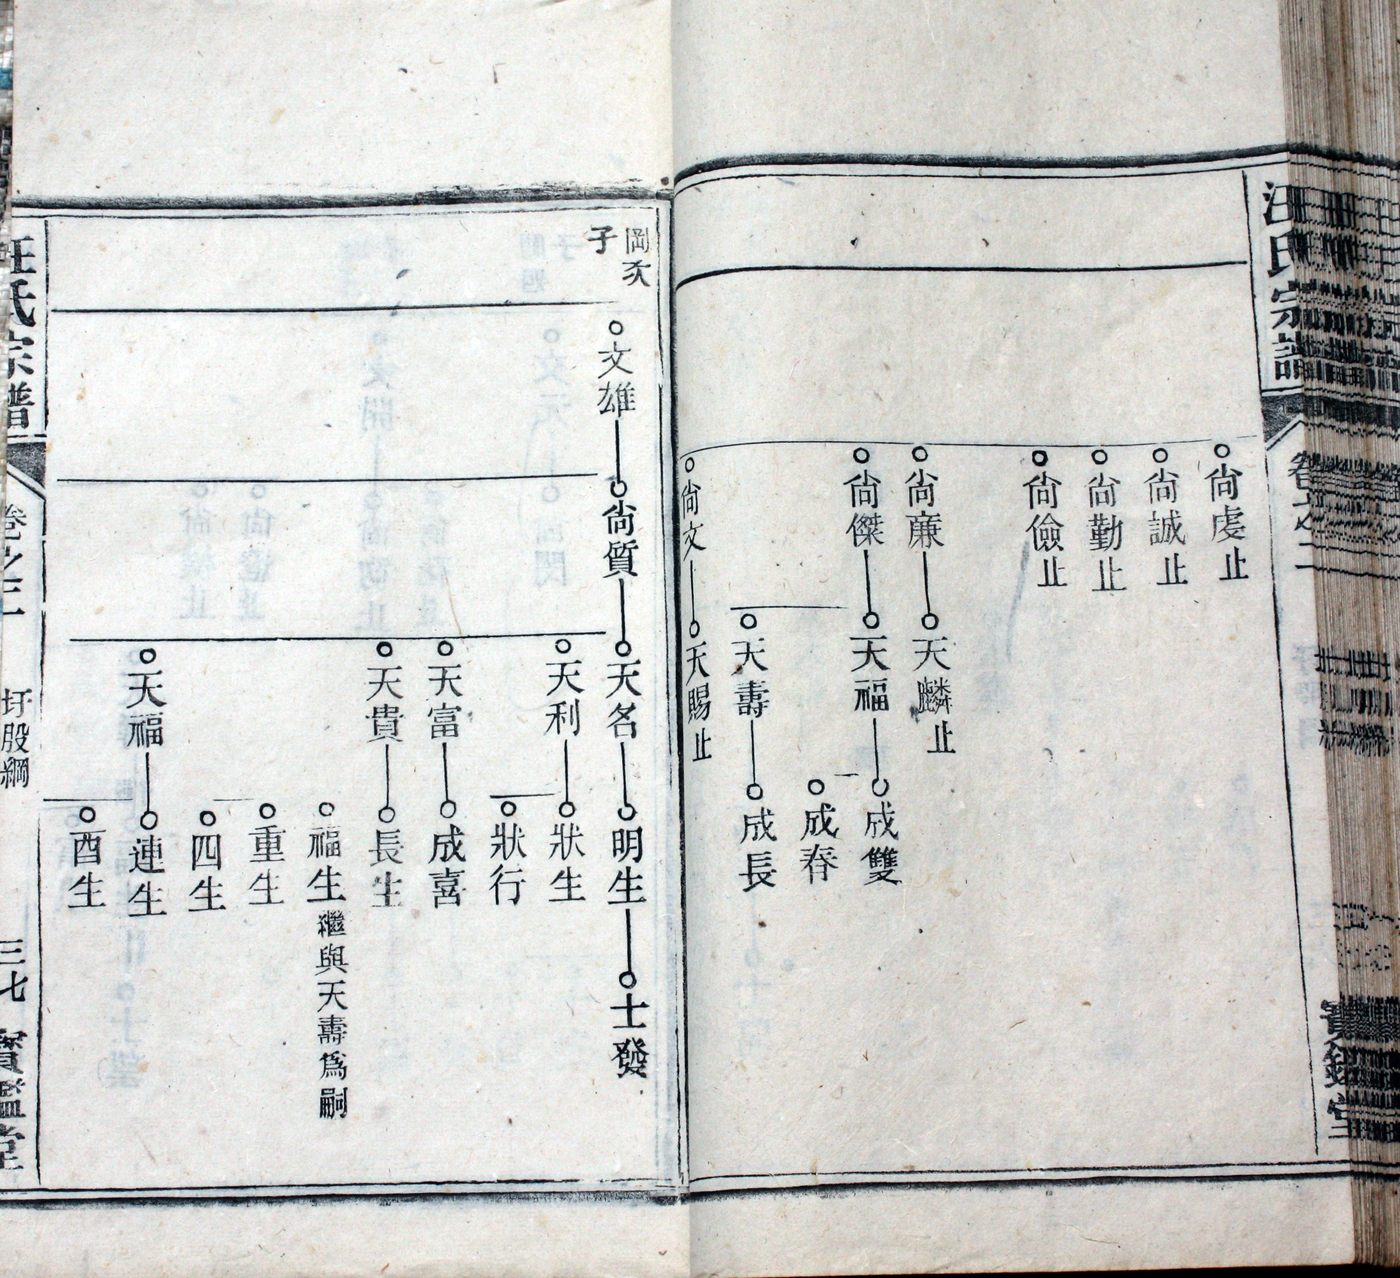 汪氏宗譜
卷之二
寶鑑堂
尙虔止
尙誠止
尙勤止
尙儉止
尙廉
天麟止
尙傑
天福
成雙
成春
天壽
成長
尙文
天賜止
岡次
子
文雄
尙質
天名
明生
士發
天利
狀生
狀行
天富
成喜
天貴
長生
福生繼與天壽爲嗣
重生
四生
天福
連生
酉生
汪氏宗譜
卷之二
圩股綱
三七
寶鑑堂